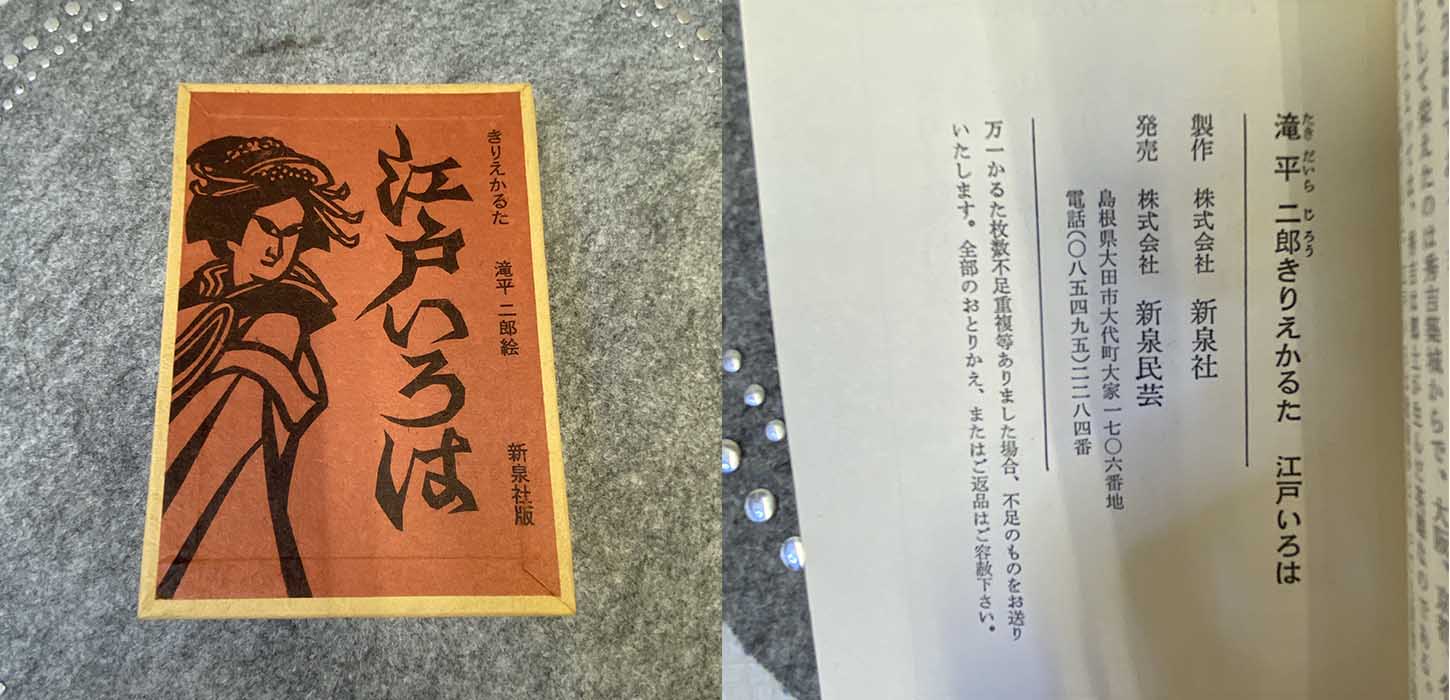 きりえかるた 滝平 二郎絵
江戸いろは
新泉社版
滝平 二郎きりえかるた 江戸いろは
たき だいら じろう
製作 株式会社 新泉社
発売 株式会社 新泉民芸
島根県大田市大代町大家一七〇六番地
電話(〇八五四九五)二二八四番
万一かるた枚数不足重複等ありました場合、不足のものをお送り
いたします。全部のおとりかえ、またはご返品はご容赦下さい。